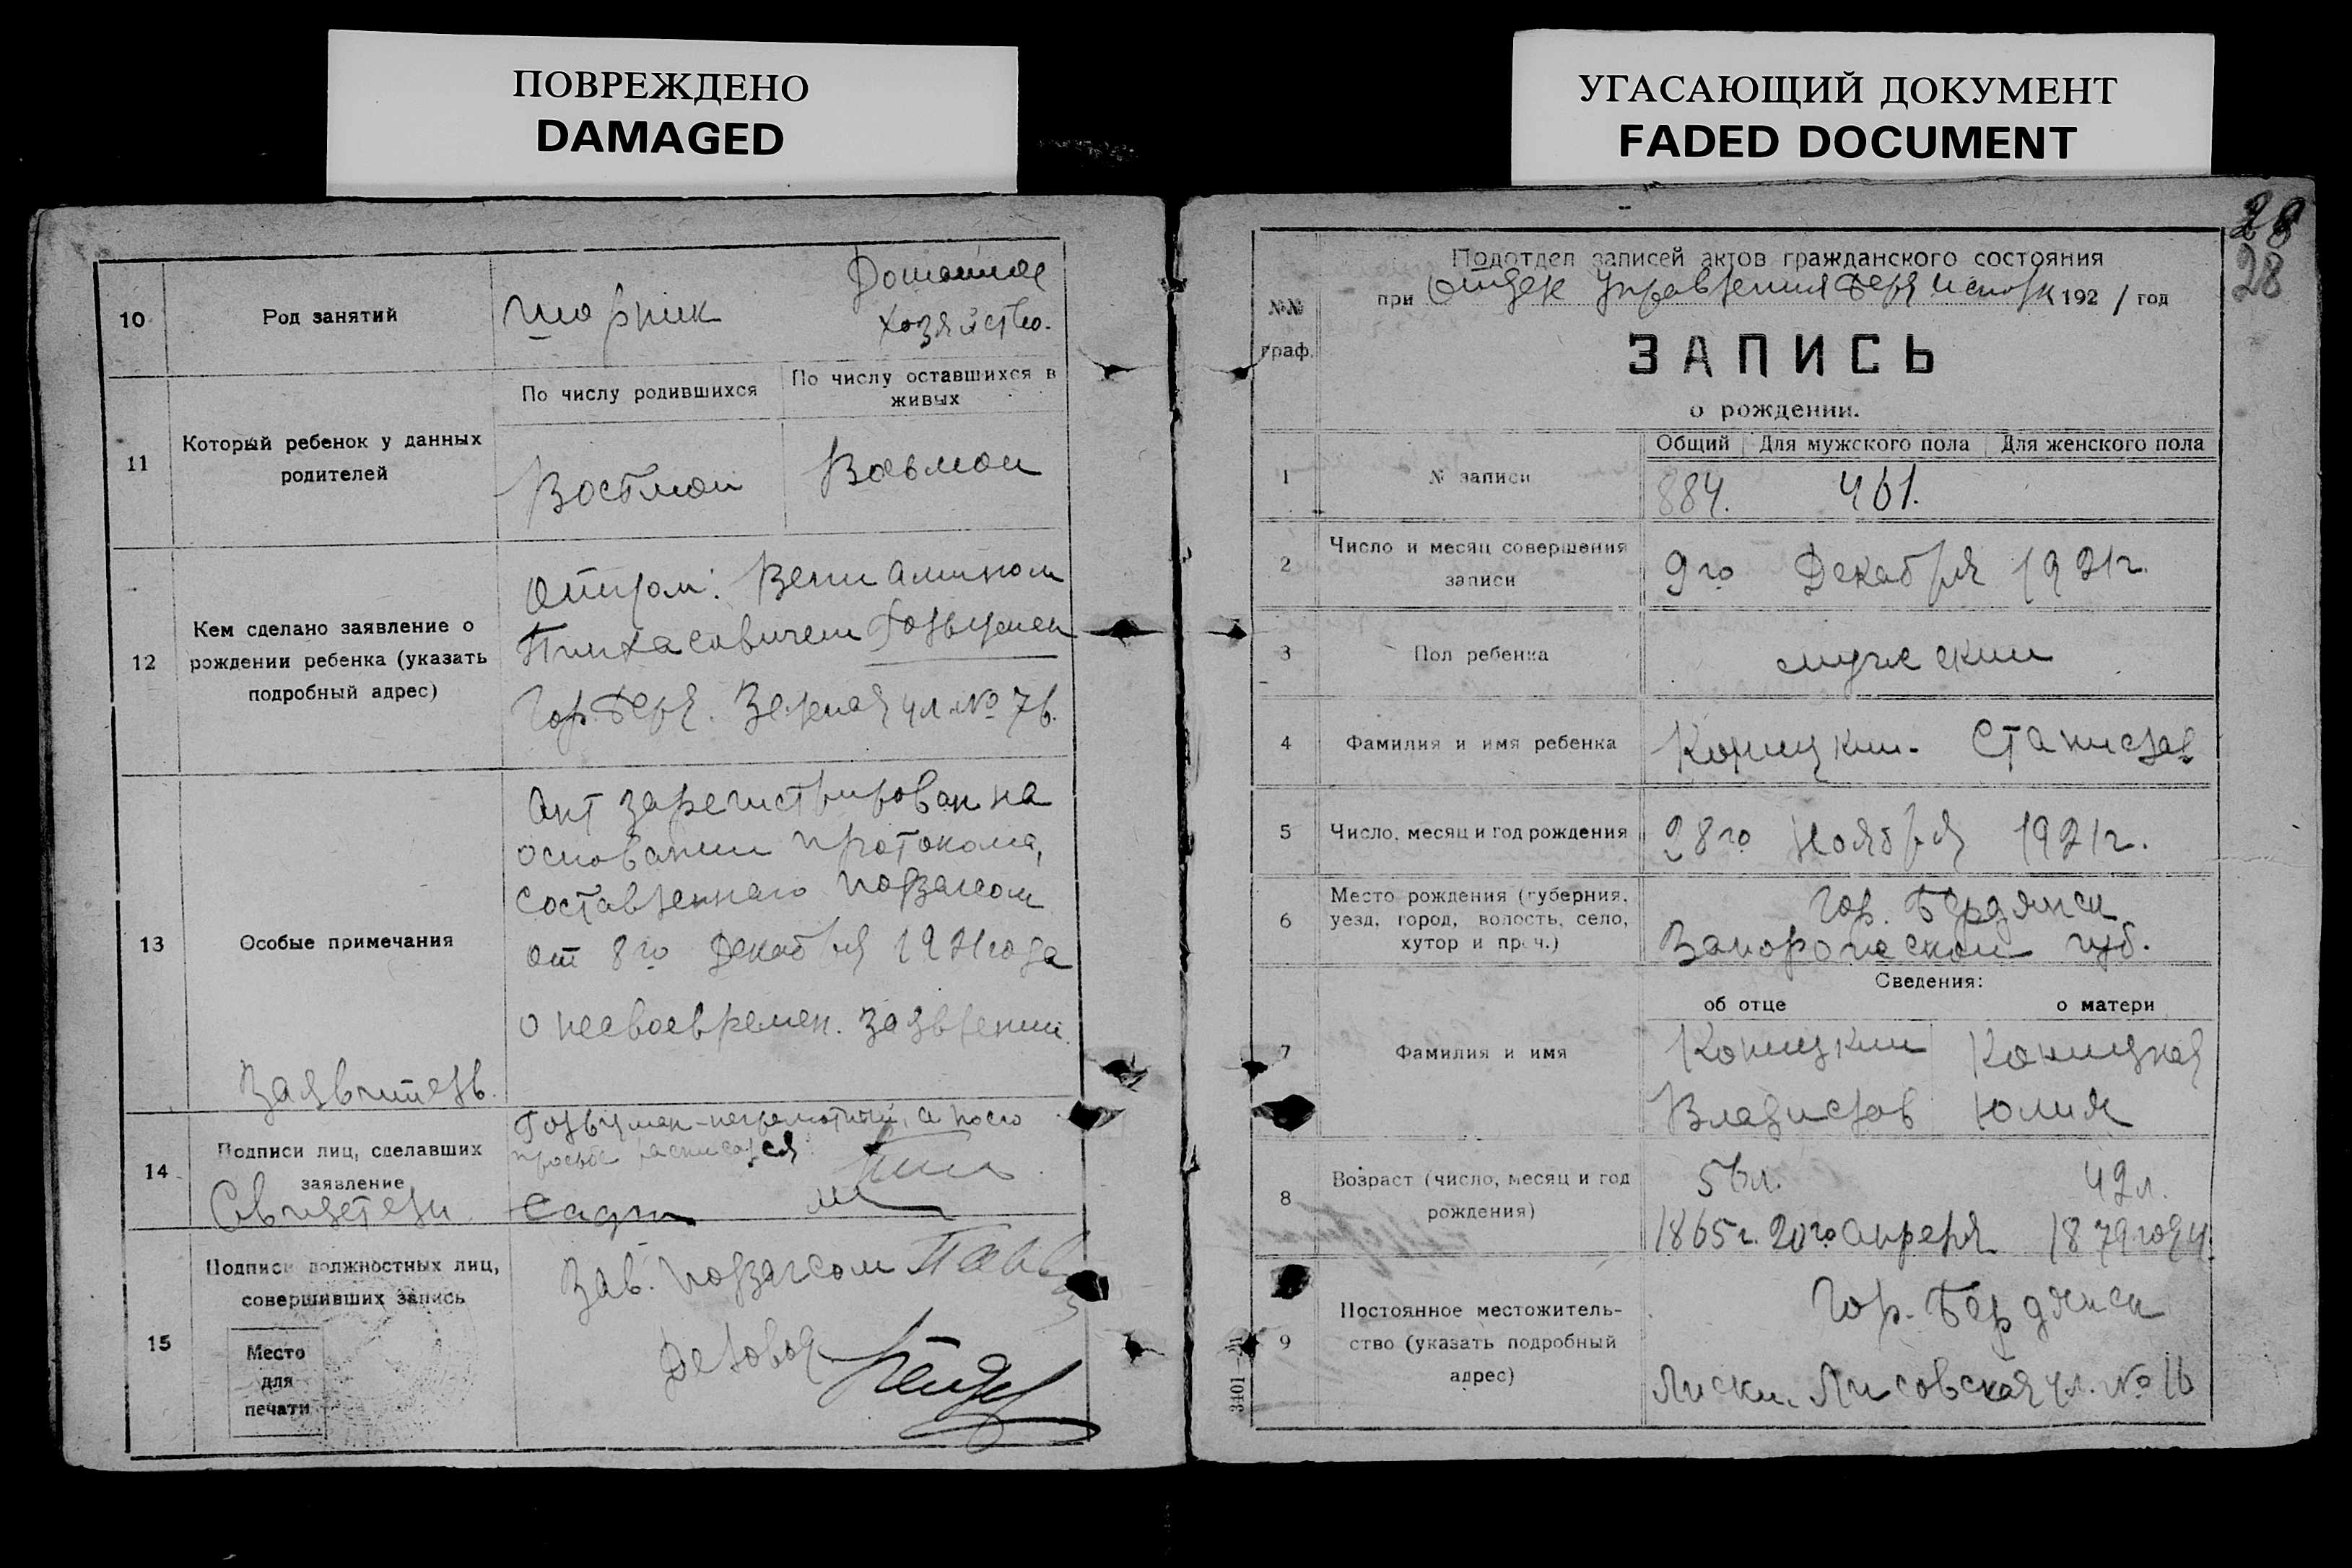 ПОВРЕЖДЕНО
DAMAGED
10
Род занятий
шорник
Домашнее
хозяйство.
11
Который ребенок у данных
родителей
По числу родившихся
По числу оставшихся в
живых
Восьмой
Восьмой
12
Кем сделано заявление о
рождении ребенка (указать
подробный адрес)
Отцом: Вениамином
Пинхасовичем Гольцмен
Гор. Берд. Зеленая ул. №
13
Особые примечания
Акт зарегистрирован на
основании протокола,
составленнаго подзагсом
от 8го Декабря 1921 года
о несвоевремен. заявлении.
Заявитель.
14
Подписи лиц, сделавших
заявление
Гольцман - неграмотный, а по его
просьбе расписался
Свидетели
15
Подписи должностных лиц,
совершивших запись
Место
для
печати
Зав. подзагсом
Делопр.
УГАСАЮЩИЙ ДОКУМЕНТ
FADED DOCUMENT
28
28
№№
граф.
Подотдел записей актов гражданского состояния
при Отделе Управления Берд Исполк 1921 год
ЗАПИСЬ
о рождении.
1
№ записи
Общий
Для мужского пола
Для женского пола
884.
461.
2
Число и месяц совершения
записи
9го Декабря 1921г.
3
Пол ребенка
мужский
4
Фамилия и имя ребенка
Коницкий - Станислав
5
Число, месяц и год рождения
28го Ноября 1921г.
6
Место рождения (губерния,
уезд, город, волость, село,
хутор и проч.)
Гор. Бердянск
Запорожской губ.
Сведения:
об отце
о матери
7
Фамилия и имя
Коницкий
Владислав
Коницкая
Юлия
8
Возраст (число, месяц и год
рождения)
56л.
42л.
1865г. 20го Апреля
1879 году.
9
Постоянное местожитель-
ство (указать подробный
адрес)
Гор. Бердянск
Лиски. Лисовская ул. № 16